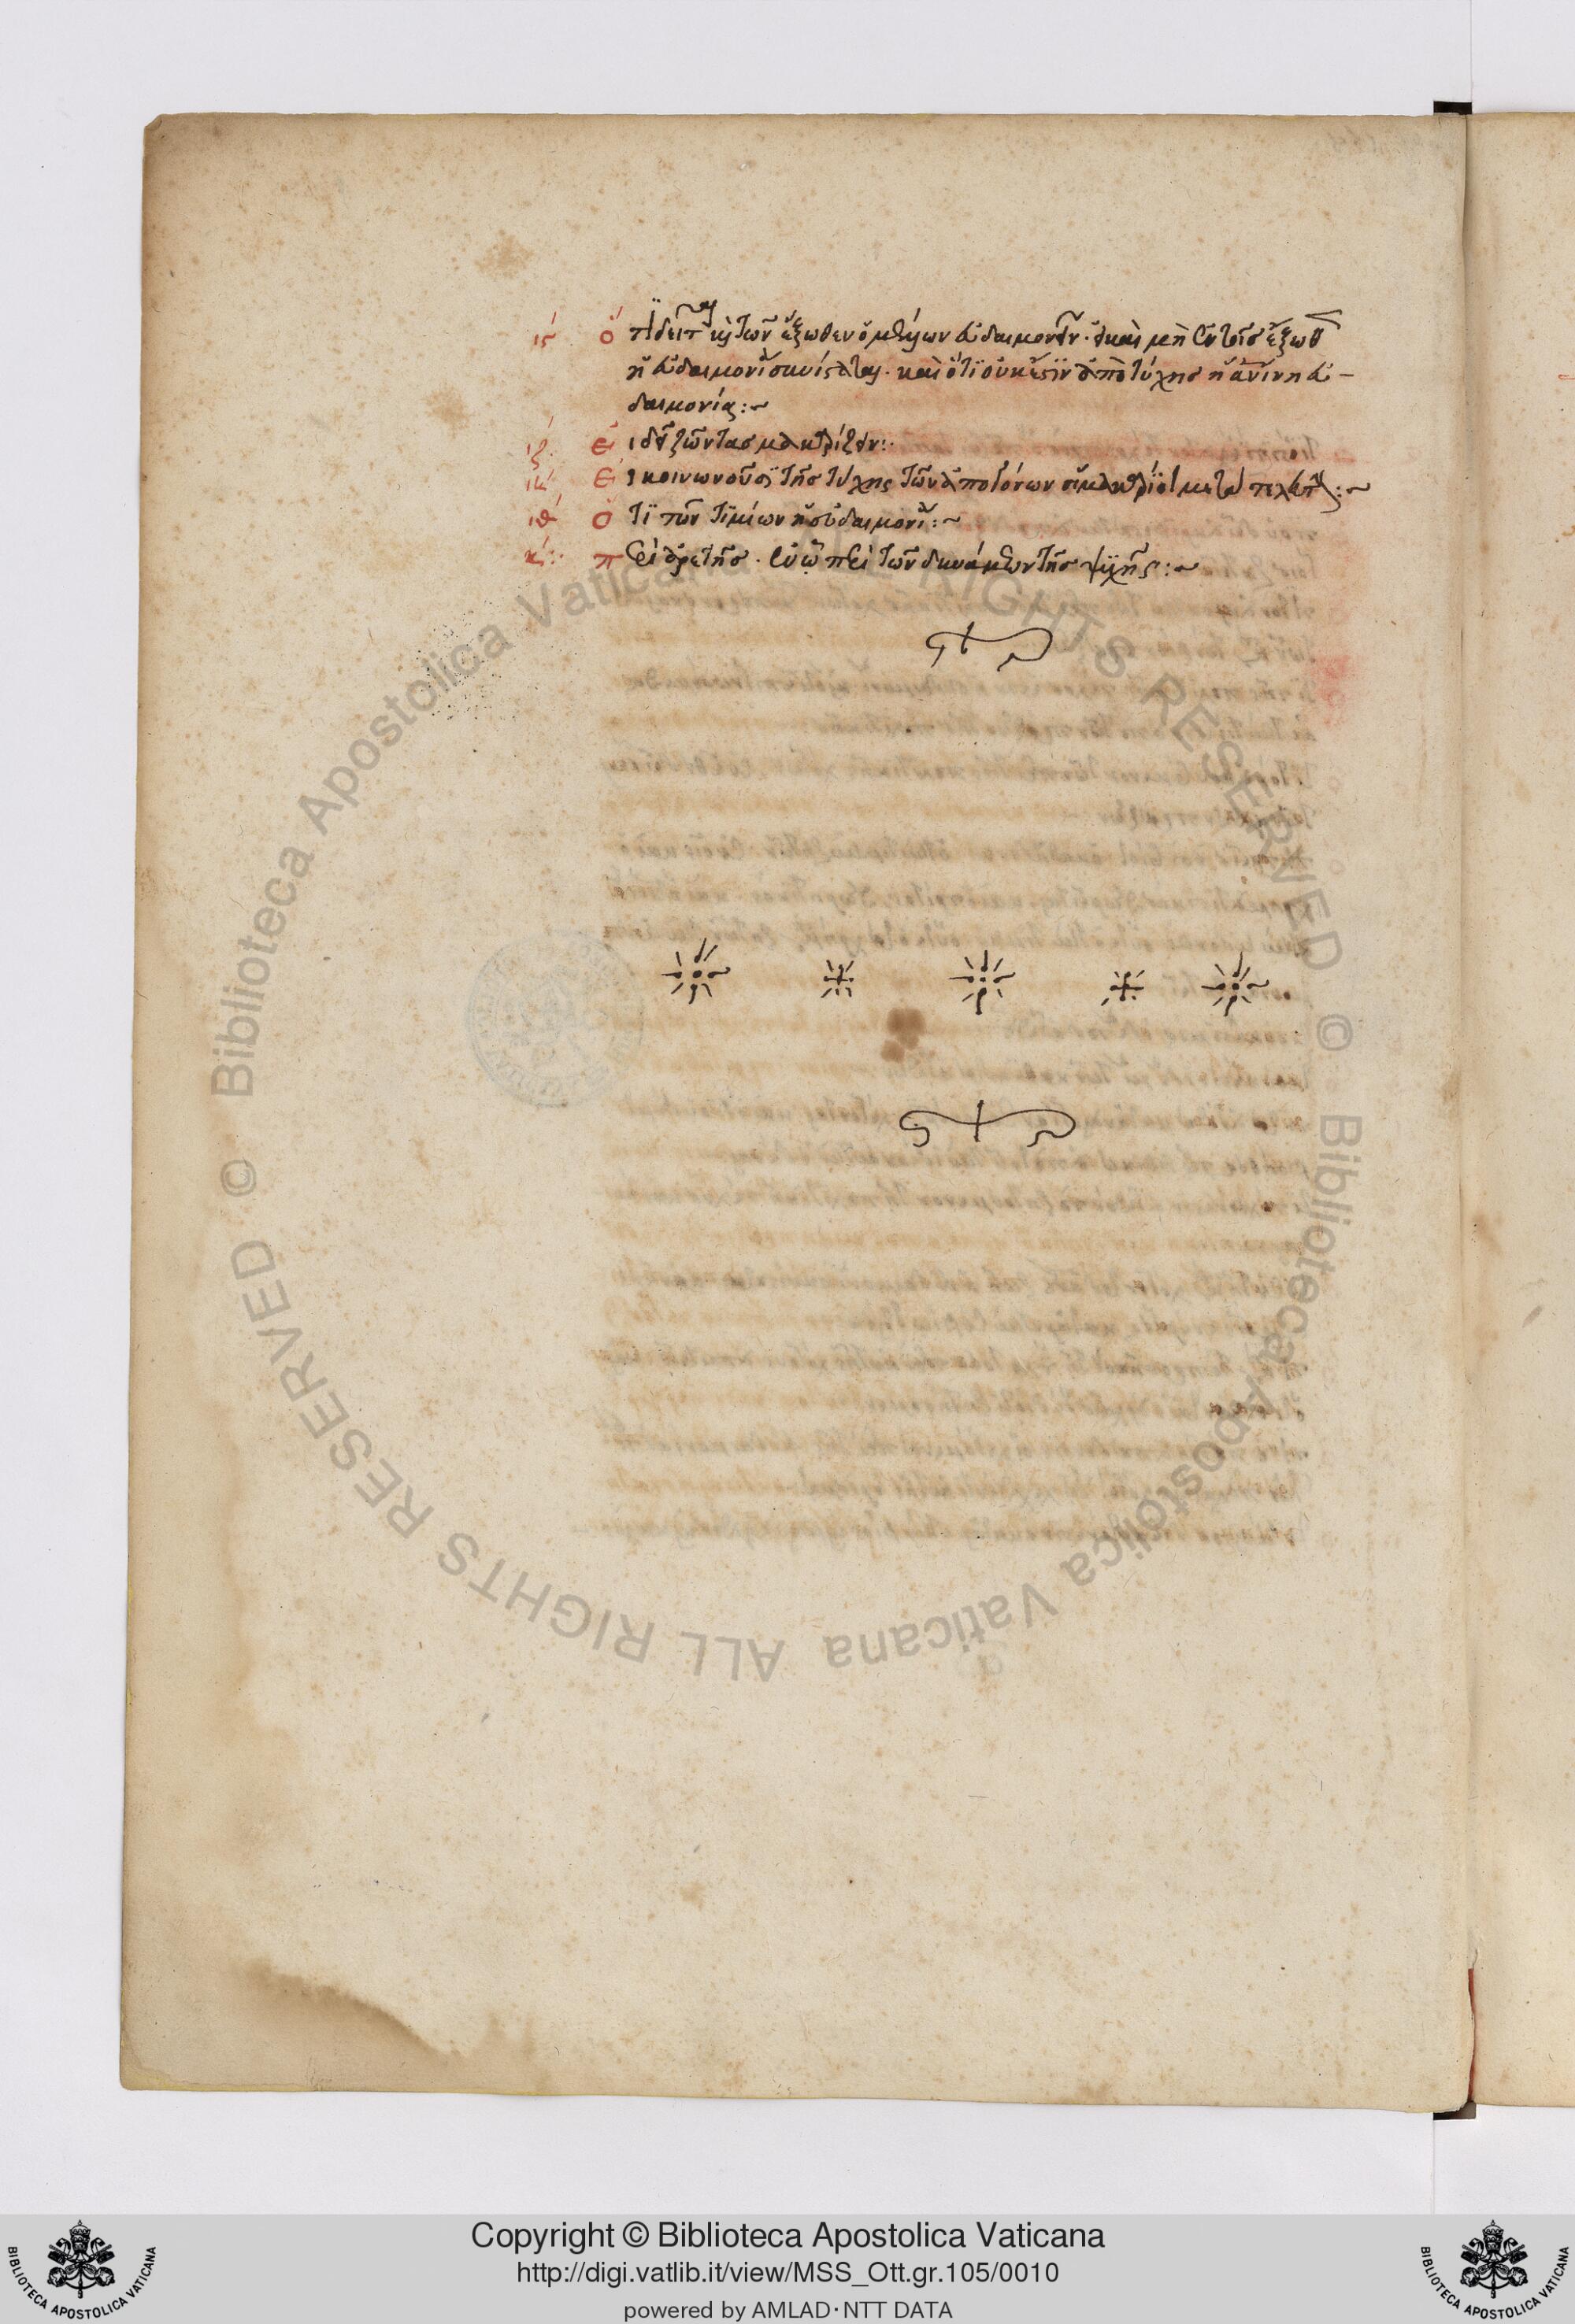 ις ὅτι δεῖται καὶ τῶν ἔξωθεν ὁ μέλλων εὐδαιμονεῖν· εἰ καὶ μὴ ἐν τοῖς ἔξωθ
ἡ εὐδαιμονία συνίσταται· καὶ ὅτι οὐκ ἔστιν ἀπὸ τύχης ἡ ἀνίνη εὐ-
δαιμονία:~
ιζ: εἰ δεῖ ζῶντας μακαρίζειν:·
ιη εἰ κοινωνοῦσι τῆς τύχης τῶν ἀπογόνων οἱ μακάριοι μετὰ τελευτὴν:~
ιθ ὅτι τῶν τιμίων ἡ εὐδαιμονία:~
κ: περὶ ἀρετῆς. ἐν ᾧ περὶ τῶν δυνάμεων τῆς ψυχῆς:~
© Biblioteca Apostolica Vaticana ALL RIGHTS RESERVED
© Biblioteca Apostolica Vaticana ALL RIGHTS RESERVED
Copyright © Biblioteca Apostolica Vaticana
http://digi.vatlib.it/view/MSS_Ott.gr.105/0010
powered by AMLAD·NTT DATA
BIBLIOTECA APOSTOLICA VATICANA
BIBLIOTECA APOSTOLICA VATICANA